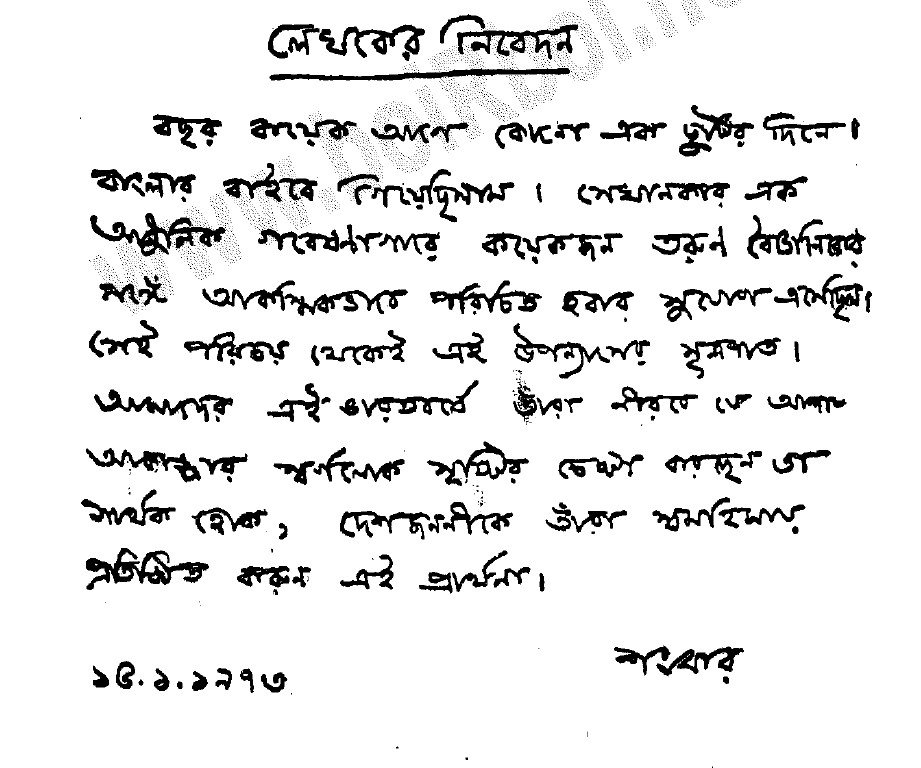 লেখকের নিবেদন
বছর কয়েক আগে কোনো এক ছুটির দিনে।
বাংলার বাইরে গিয়েছিলাম। সেখানকার এক
আধুনিক গবেষণাগারে কয়েকজন তরুণ বৈজ্ঞানিকের
সঙ্গে আকস্মিকভাবে পরিচিত হবার সুযোগ এসেছিল।
সেই পরিচয় থেকেই এই উপন্যাসের সূত্রপাত।
আমাদের এই ভারতবর্ষে তাঁরা নীরবে যে আশা
আকাঙ্ক্ষার স্বর্ণলোক সৃষ্টির চেষ্টা করছেন তা
সার্থক হোক, দেশজননীকে তাঁরা স্বমহিমায়
প্রতিষ্ঠিত করুন এই প্রার্থনা।
শংকর
১৫.১.১৯৭৩